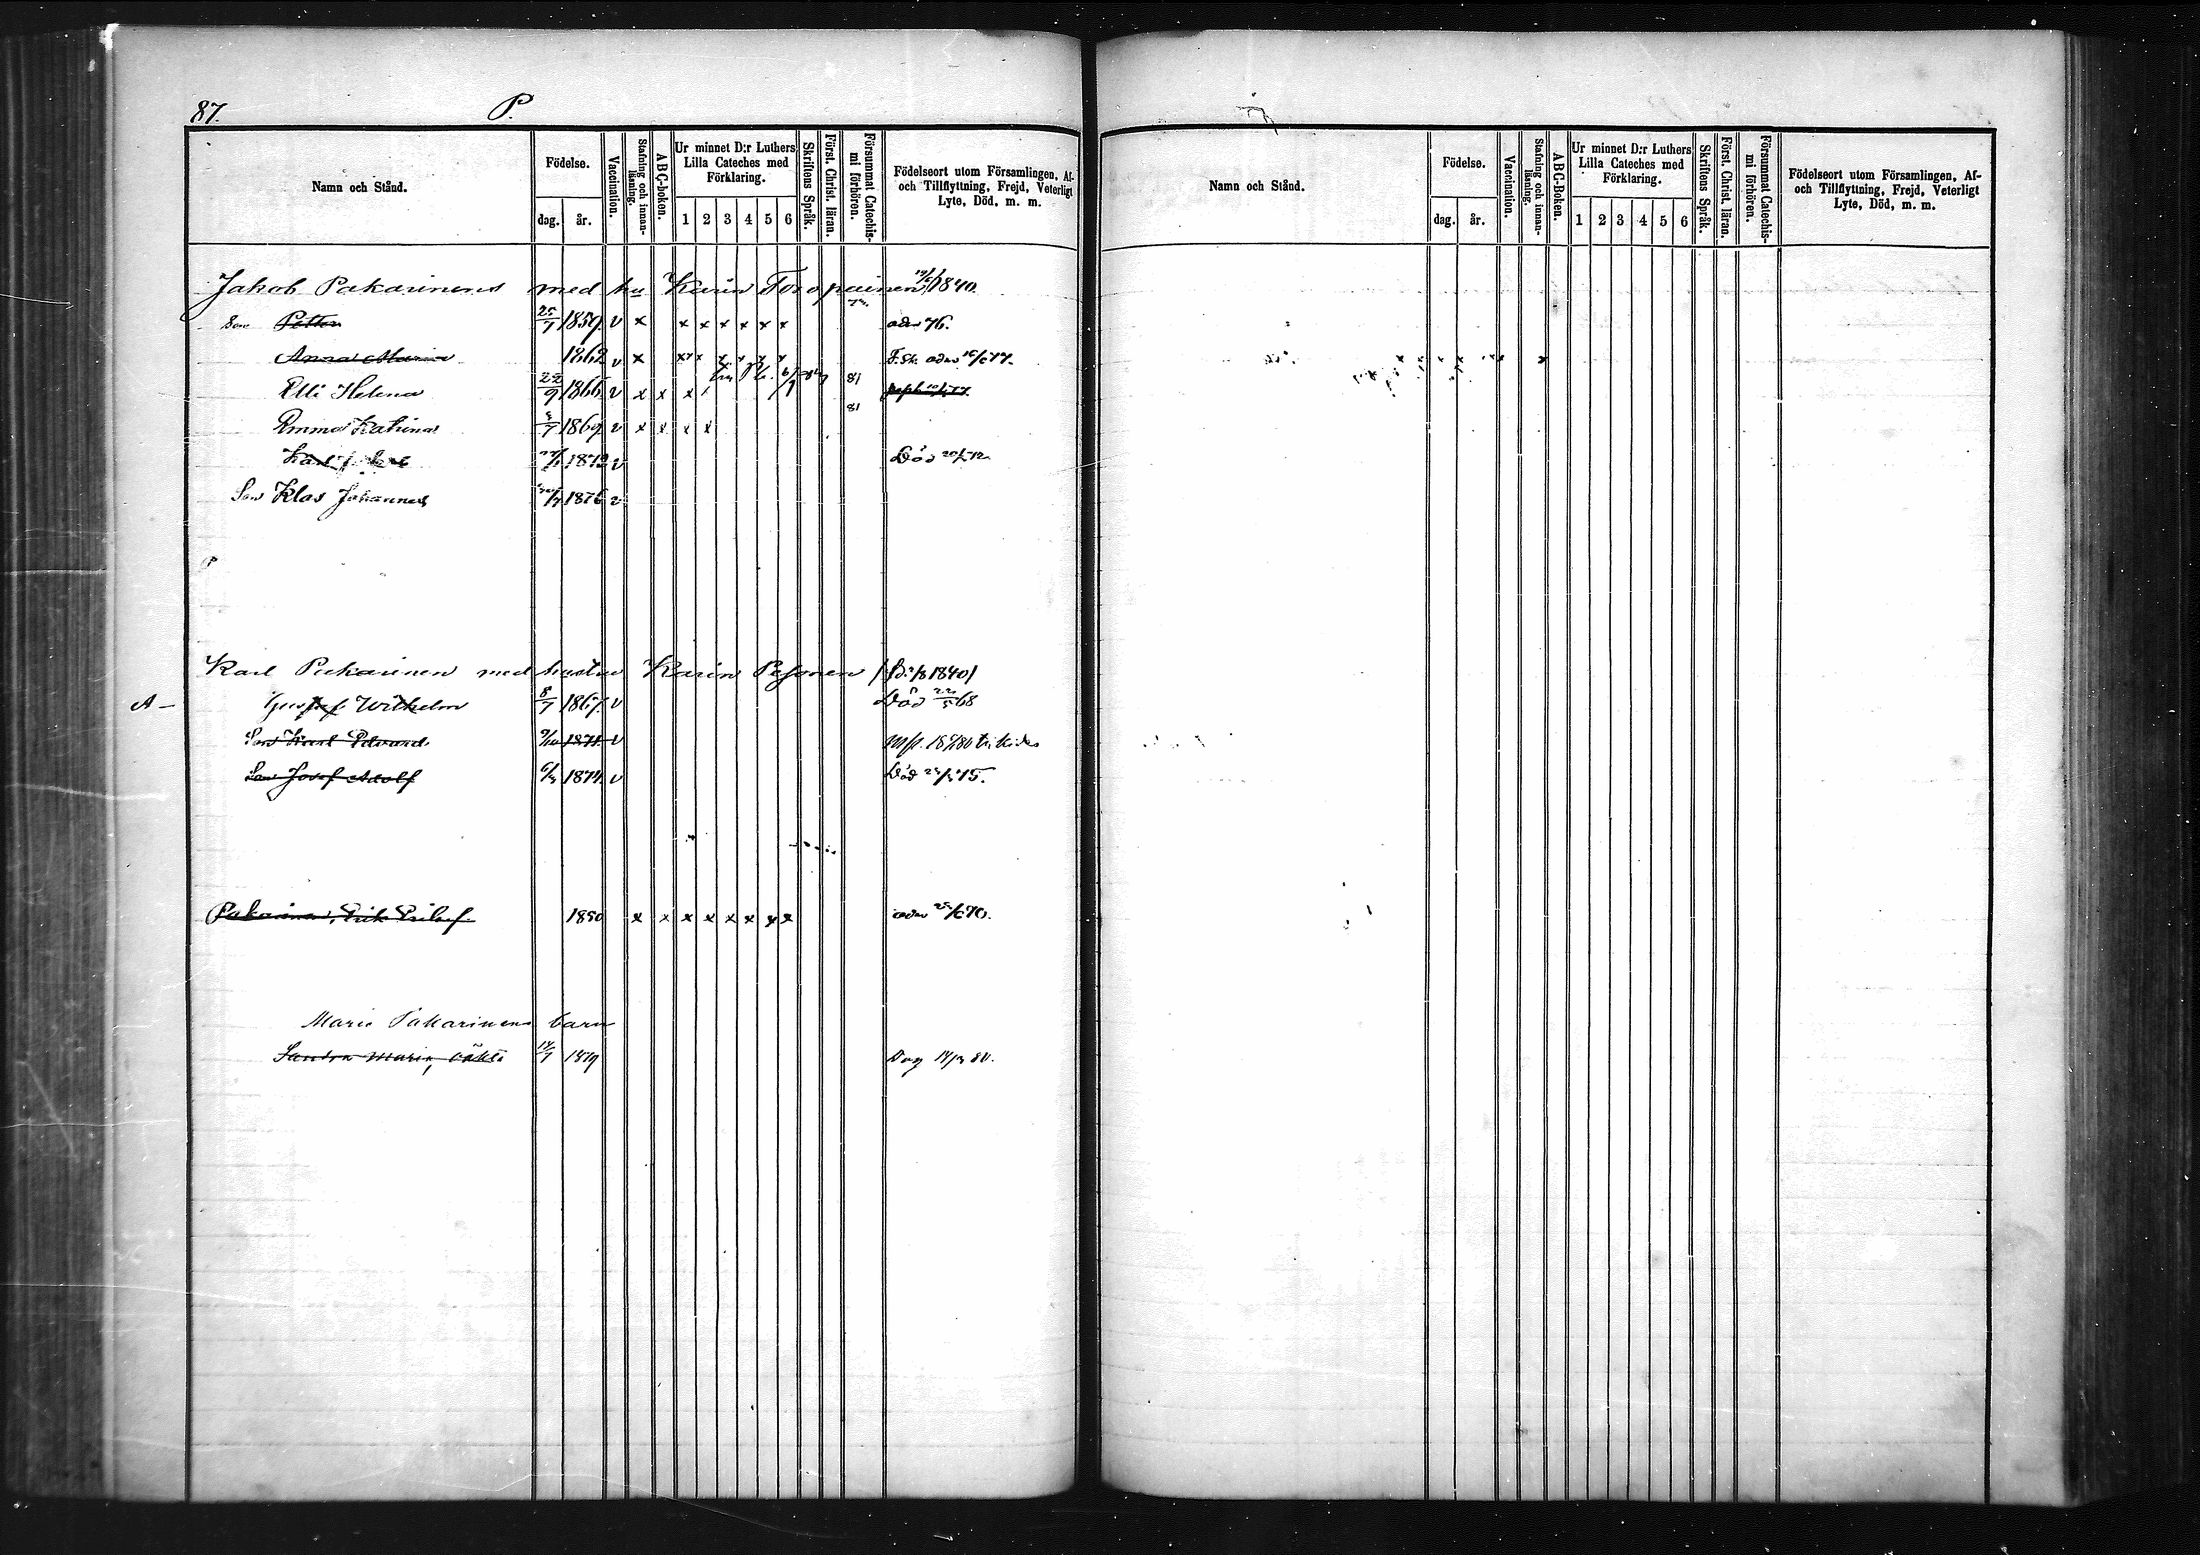 87. P.
Namn och Stånd. Födelse. dag. år. Vaccination. Stafning och innanläsning. ABC-boken. Ur minnet D:r Luthers Lilla Cateches med Förklaring. 1 2 3 4 5 6 Skriftens Språk. Först. Christ. läran. Försummat Catechismi förhören. Födelseort utom Församlingen, Af- och Tillflyttning, Frejd, Veterligt Lyte, Död, m. m.
Jakob Pakarinens med hu Karin Toropainen 1840
Son Petter 25/7 1859 v x x x x x x x adm 76.
Anna Maria 1862 v x F. Sk. adm 77.
Elli Helena 22/9 1866 v x x x 81
Emma Katrina 1869 v x x x x 81
Karl 1872 v Död 72
Son Klas Johannes 1876 v
Karl Pakarinen med hustru Karin Pesonen 1840
A - Gustaf Wilhelm 8/7 1867 v Död 22/5 68
Son Karl Edvard 9/10 1871 v
Son Josef Adolf 1874 v Död 75.
Pakarinen, Erik 1850 x x x x x x x x adm 70.
Maria Pakarinens barn
Sandra Maria, oäkta 1879 80.
Namn och Stånd. Födelse. dag. år. Vaccination. Stafning och innanläsning. ABC-Boken. Ur minnet D:r Luthers Lilla Cateches med Förklaring. 1 2 3 4 5 6 Skriftens Språk. Först. Christ. läran. Försummat Catechismi förhören. Födelseort utom Församlingen, Af- och Tillflyttning, Frejd, Veterligt Lyte, Död, m. m.